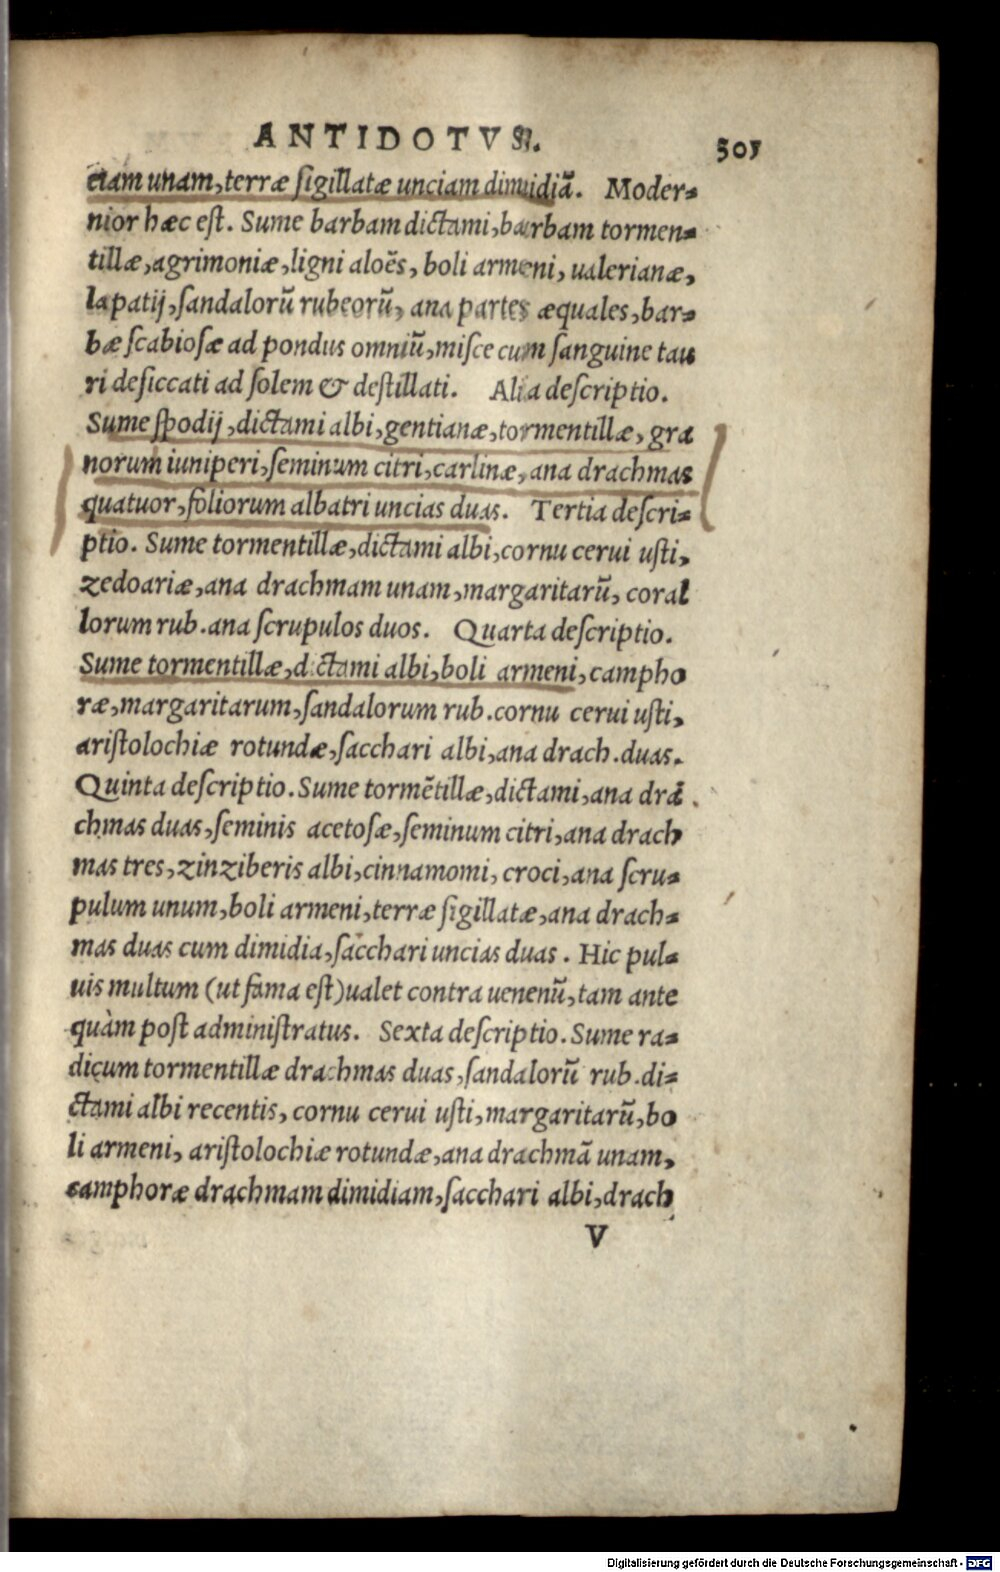 ANTIDOTVS. 305
ciam unam, terræ sigillatæ unciam dimidiã. Moder-
nior hæc est. Sume barbam dictami, barbam tormen-
tillæ, agrimoniæ, ligni aloẽs, boli armeni, ualerianæ,
lapatij, sandalorũ rubeorũ, ana partes æquales, bar-
bæ scabiosæ ad pondus omniũ, misce cum sanguine tau
ri desiccati ad solem & destillati. Alia descriptio.
Sume spodij, dictami albi, gentianæ, tormentillæ, gra
norum iuniperi, seminum citri, carlinæ, ana drachmas
quatuor, foliorum albatri uncias duas. Tertia descri-
ptio. Sume tormentillæ, dictami albi, cornu cerui usti,
zedoariæ, ana drachmam unam, margaritarũ, coral
lorum rub. ana scrupulos duos. Quarta descriptio.
Sume tormentillæ, dictami albi, boli armeni, campho
ræ, margaritarum, sandalorum rub. cornu cerui usti,
aristolochiæ rotundæ, sacchari albi, ana drach. duas.
Quinta descriptio. Sume tormẽtillæ, dictami, ana dra
chmas duas, seminis acetosæ, seminum citri, ana drach
mas tres, zinziberis albi, cinnamomi, croci, ana scru-
pulum unum, boli armeni, terræ sigillatæ, ana drach-
mas duas cum dimidia, sacchari uncias duas. Hic pul-
uis multum (ut fama est) ualet contra uenenũ, tam ante
quàm post administratus. Sexta descriptio. Sume ra-
dicum tormentillæ drachmas duas, sandalorũ rub. di-
ctami albi recentis, cornu cerui usti, margaritarũ, bo
li armeni, aristolochiæ rotundæ, ana drachmã unam,
camphoræ drachmam dimidiam, sacchari albi, drach
V
Digitalisierung gefördert durch die Deutsche Forschungsgemeinschaft - DFG